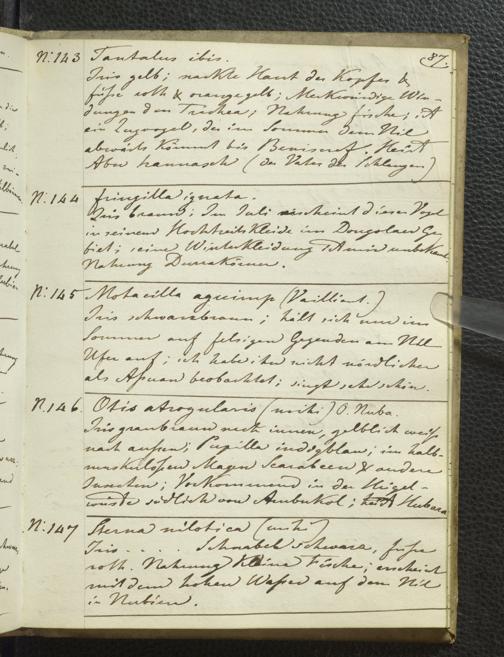 87.
N: 143 Tantalus ibis.
Iris gelb; nackte Haut des Kopfes &
füsse roth & orangegelb; Merkwürdige Win-
dungen der Trachea; Nahrung fische; ist
ein Zugvogel, der im Sommer dem Nil
abwärts kömmt bis Benisuef. Heist
Abu hannasch (der Vater der Schlangen)
N: 144 fringilla ignata.
Iris braun; Im Juli erscheint dieser Vogel
in seinem Hochzeitskleide im Dongolaer Ge-
biet; seine Winterkleidung ist mir unbekant
Nahrung Durrakörner.
N: 145 Motacilla aguimp (Vailliant.)
Iris schwarzbraun; hält sich nur im
Sommer auf felsigen Gegenden am Nil
Ufer auf; ich habe ihn nicht nördlicher
als Assuan beobachtet; singt sehr schön.
N: 146. Otis atrogularis (mihi) O. Nuba.
Iris graubraun nach innen, gelblich weiss
nach aussen; Pupilla indigblau; im halb-
muskulosen Magen Scarabeen & andere
Insecten; Vorkommend in der Hügel-
wüste südlich von Ambukol; heist Hubara
N: 147 Sterna nilotica (mihi)
Iris . . . . Schnabel schwarz, füsse
roth. Nahrung kleine Fische; erscheint
mit dem hohen Wasser auf dem Nil
in Nubien.